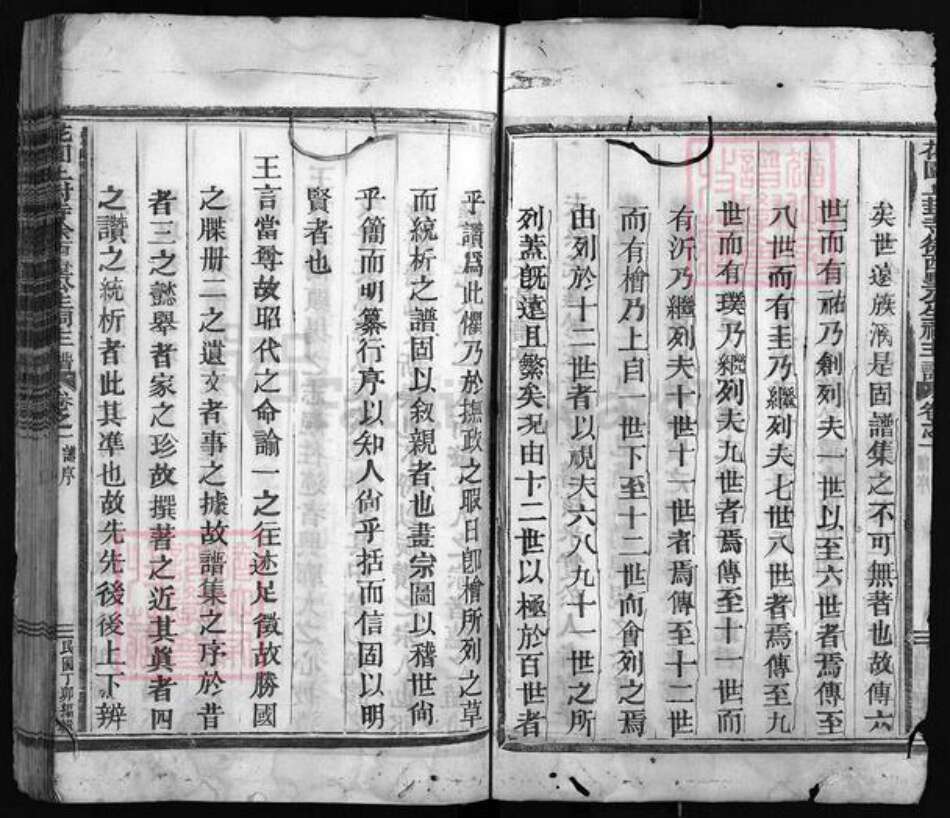 矣世遠族涣是固譜集之不可無著也故傳六
世而有祐乃創列夫一世以至六世者焉傳至
八世而有圭乃繼列夫七世八世者焉傳至九
世而有璞乃繼列夫九世者焉傳至十一世而
有沂乃繼列夫十世十一世者焉傳至十二世
而有檜乃上自一世下至十二世而會列之焉
由列於十二世者以視夫六八九十一世之所
列蓋既遠且繁矣況由十二世以極於百世者
乎讚爲此懼乃於撫政之暇日卽檜所列之草
而統析之譜固以敘親者也畫宗圖以稽世尙
乎簡而明纂行序以知人尙乎括而信固以明
賢者也
王言當尊故昭代之命諭一之往述足徵故勝國
之牒册二之遺文者事之據故譜集之序於昔
者三之懿舉者家之珍故撰著之近其眞者四
之讚之統析者此其準也故先先後後上下辨
卷之一 譜序
民國丁卯編輯